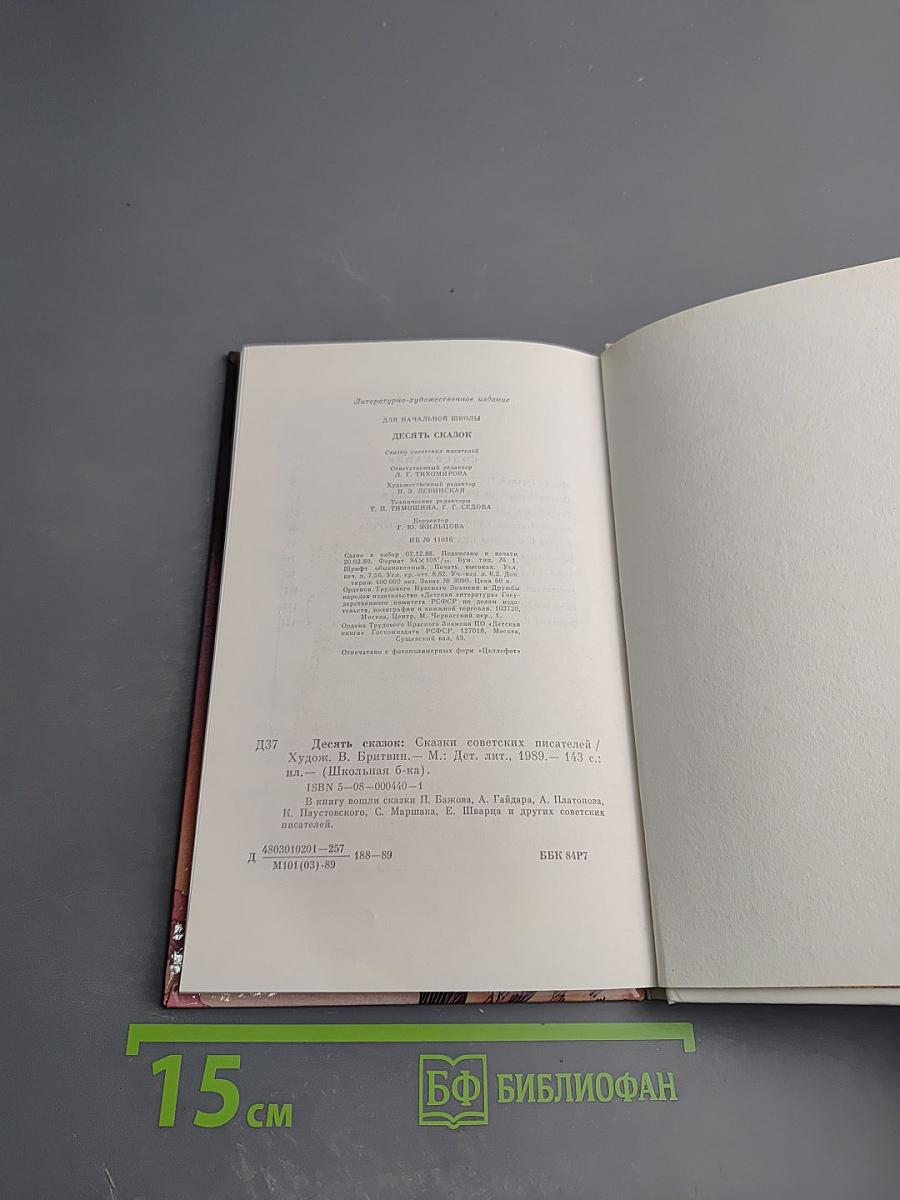 Литературно-художественное издание
ДЛЯ НАЧАЛЬНОЙ ШКОЛЫ
ДЕСЯТЬ СКАЗОК
Сказки советских писателей
Ответственный редактор
Л. Г. ТИХОМИРОВА
Художественный редактор
Н. З. ЛЕВИНСКАЯ
Технические редакторы
Т. П. ТИМОШИНА, Г. Г. СЕДОВА
Корректор
Г. Ю. ЖИЛЬЦОВА
ИБ № 11016
Сдано в набор 02.12.88. Подписано к печати
20.03.89. Формат 84×108¹/₃₂. Бум. тип. № 1.
Шрифт обыкновенный. Печать высокая. Усл.
печ. л. 7,56. Усл. кр.-отт. 8,82. Уч.-изд. л. 6,2. Доп.
тираж 400 000 экз. Заказ № 3090. Цена 60 к.
Орденов Трудового Красного Знамени и Дружбы
народов издательство «Детская литература» Госу-
дарственного комитета РСФСР по делам изда-
тельств, полиграфии и книжной торговли. 103720,
Москва, Центр, М. Черкасский пер., 1.
Ордена Трудового Красного Знамени ПО «Детская
книга» Госкомиздата РСФСР. 127018, Москва,
Сущевский вал, 49.
Отпечатано с фотополимерных форм «Целлофот»
Д37 Десять сказок: Сказки советских писателей /
Худож. В. Бритвин.— М.: Дет. лит., 1989.— 143 с.:
ил.— (Школьная б-ка).
ISBN 5—08—000440—1
В книгу вошли сказки П. Бажова, А. Гайдара, А. Платонова,
К. Паустовского, С. Маршака, Е. Шварца и других советских
писателей.
Д 4803010201—257 188—89 ББК 84Р7
М101(03)-89
15 см БФ БИБЛИОФАН